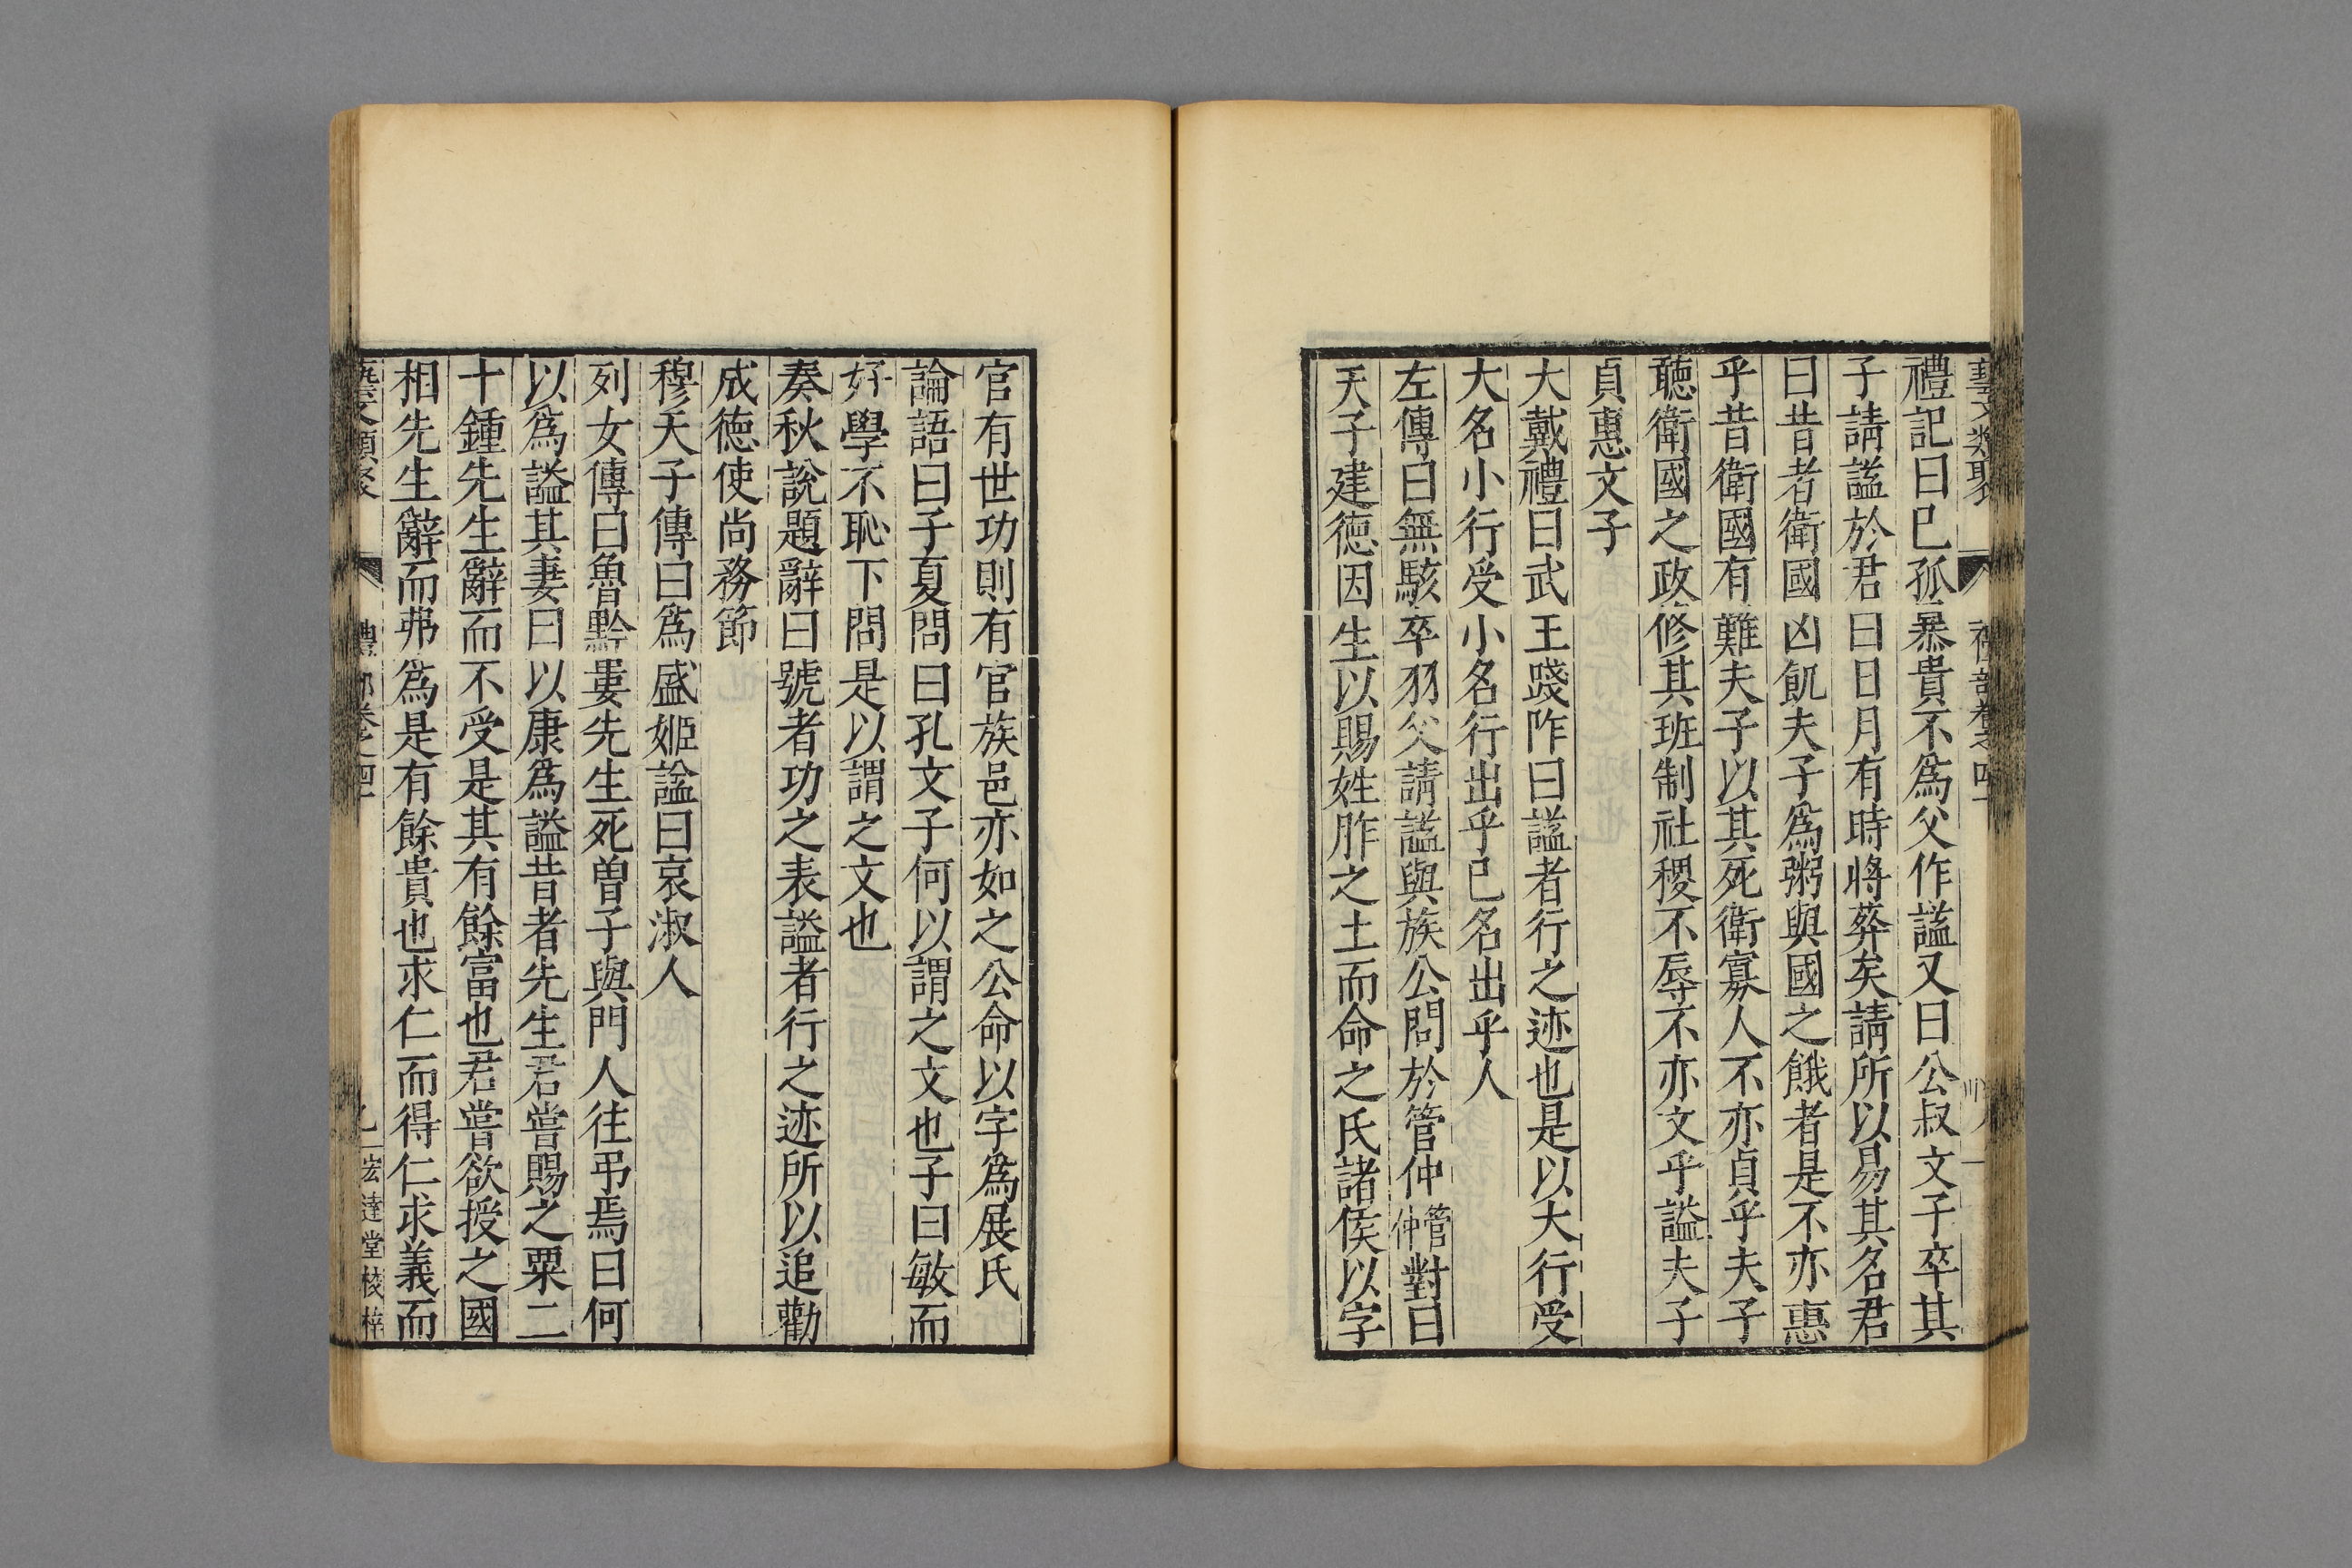 藝文類聚 禮部卷之四十
禮記曰已孤暴貴不爲父作謚又曰公叔文子卒其
子請謚於君曰日月有時將葬矣請所以易其名君
曰昔者衛國凶飢夫子爲粥與國之餓者是不亦惠
乎昔衛國有難夫子以其死衛寡人不亦貞乎夫子
聽衛國之政修其班制社稷不辱不亦文乎謚夫子
貞惠文子
大戴禮曰武王踐阼曰謚者行之迹也是以大行受
大名小行受小名行出乎已名出乎人
左傳曰無駭卒羽父請謚與族公問於管仲管仲對曰
天子建德因生以賜姓胙之土而命之氏諸侯以字
官有世功則有官族邑亦如之公命以字爲展氏
論語曰子夏問曰孔文子何以謂之文也子曰敏而
好學不恥下問是以謂之文也
春秋說題辭曰號者功之表謚者行之迹所以追勸
成德使尚務節
穆天子傳曰爲盛姬謚曰哀淑人
列女傳曰魯黔婁先生死曾子與門人往弔焉曰何
以爲謚其妻曰以康爲謚昔者先生君嘗賜之粟二
十鍾先生辭而不受是其有餘富也君嘗欲授之國
相先生辭而弗爲是有餘貴也求仁而得仁求義而
藝文類聚 禮部卷之四十 九 宏達堂校梓